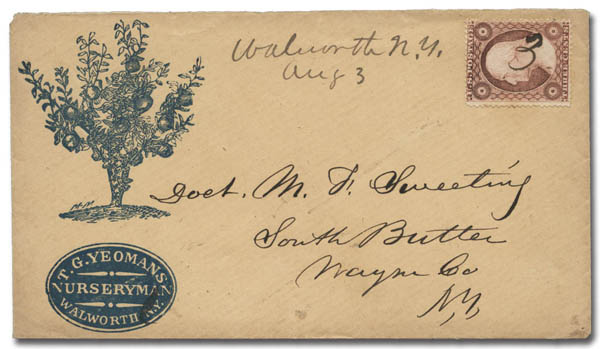 Walworth N.Y.
Aug 3
3
Doct. M. F. Sweeting
South Butler
Wayne Co
NY
T. G. YEOMANS
NURSERYMAN
WALWORTH N.Y.